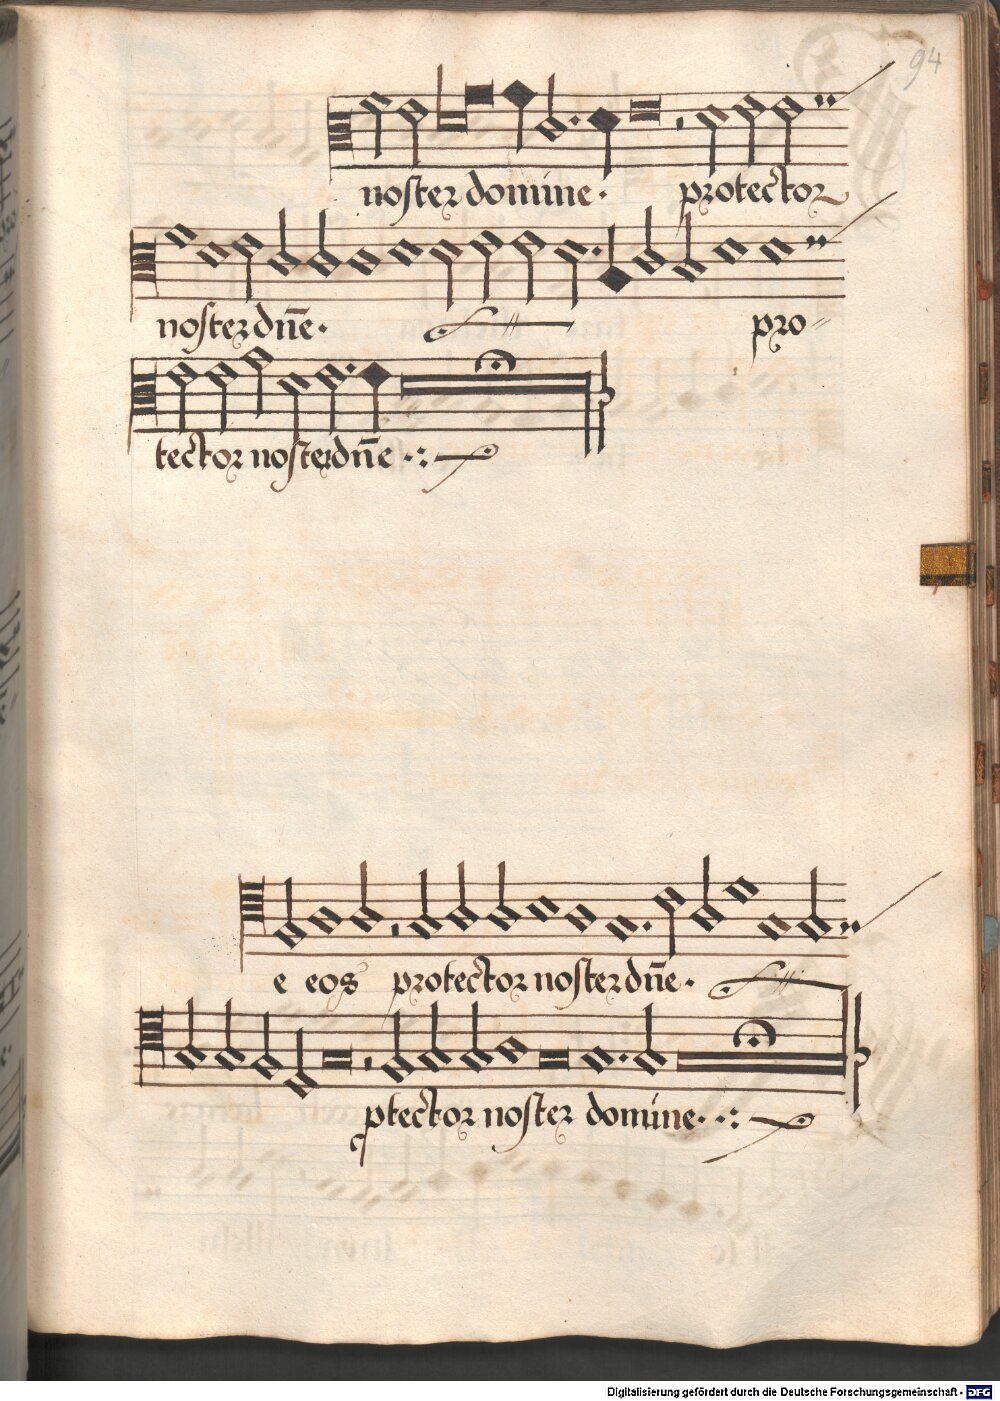 94
noster domine. protector
noster dñe. pro=
tector noster dñe
e eos protector noster dñe.
ꝓtector noster domine.
Digitalisierung gefördert durch die Deutsche Forschungsgemeinschaft - DFG